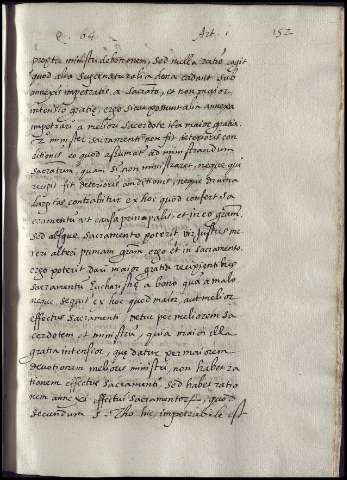 Q. 64 Art. 1 152
propter ministri devotionem, sed nulla ratio cogit
quod alia supernaturalia dona cadant sub
annexis impetratis a Sacerdote, et non maior
intensio gratiæ, ergo sicut possunt alia annexa
impetrari a meliori Sacerdote ita maior gratia.
minister sacramenti non fit deterioris con
ditionis eo quod assumatur ad ministrandum
Sacramentum, quam si non ministraret, neque qui
recipit fit deterioris conditionis, neque divina
largitas contrahitur ex hoc quod confert Sa
cramentum ut causa principalis, et in eo gratiam.
Sed absque Sacramento poterit vir justus me
reri alteri primam gratiam ergo et in sacramento.
ergo poterit dari maior gratia recipientibus
sacramentum Eucharistiæ a bono quam a malo
neque sequitur ex hoc quod maior aut melior
effectus Sacramenti detur per meliorem Sa
cerdotem, et ministrum, quia maior illa
gratia intensior, quæ datur per maiorem
devotionem melioris ministri, non habet ra
tionem effectus Sacramenti. Sed habet ratio
nem annexi effectui Sacramentorum, quod
secundum S. Tho hic, impetrabile est